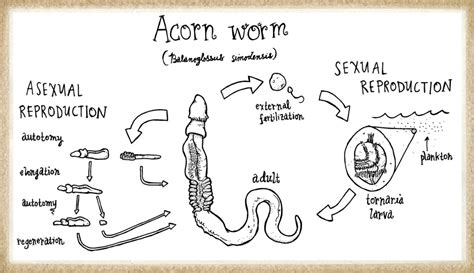 Acorn worm
(Balanoglossus simodensis)
ASEXUAL
REPRODUCTION
autotomy
elongation
autotomy
regeneration
adult
external
fertilization
SEXUAL
REPRODUCTION
plankton
tornaria
larva